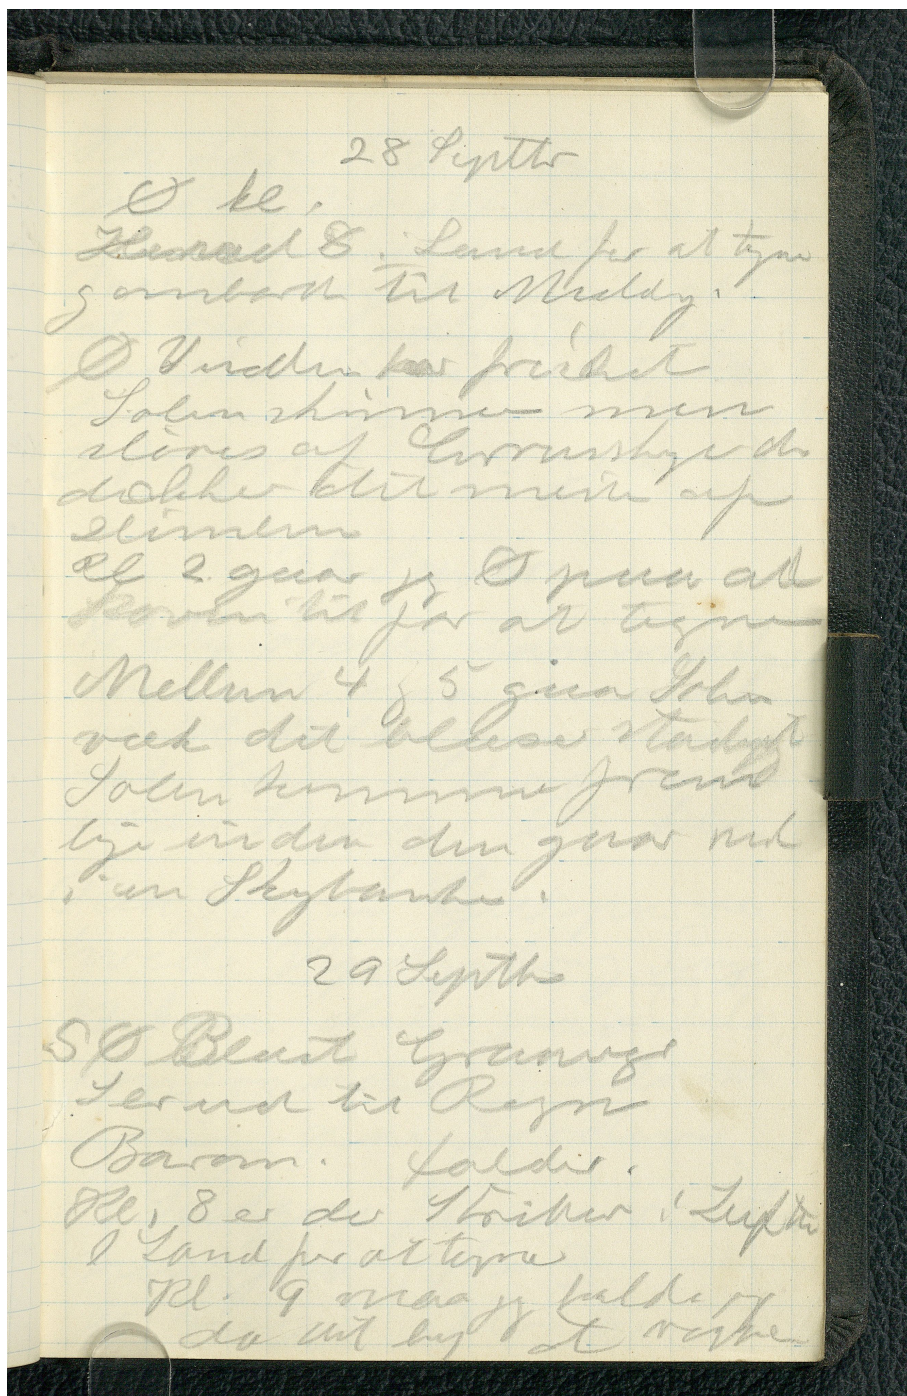 28 Septbr
Ø kl.
8 i Land for at tegne
ombord til Middg.
Ø Vinden har frisket
Solen skinner men
sløres af Cirrusskyer der
dækker det meste af
Himlen
Kl 2 gaar jg Ø paa at
til for at tegne
Mellem 4 g 5 gaar Solen
væk det blæser stadigt
Solen kommer frem
lige inden den gaar ned
i en Skybanke.
29 Septbr
SØ Blæst Graavejr
Ser ud til Regn
Barom. falder.
Kl, 8 er der Striber i Luften
I Land for at tegne
Kl. 9 maa jg holde op
da det beg at regne